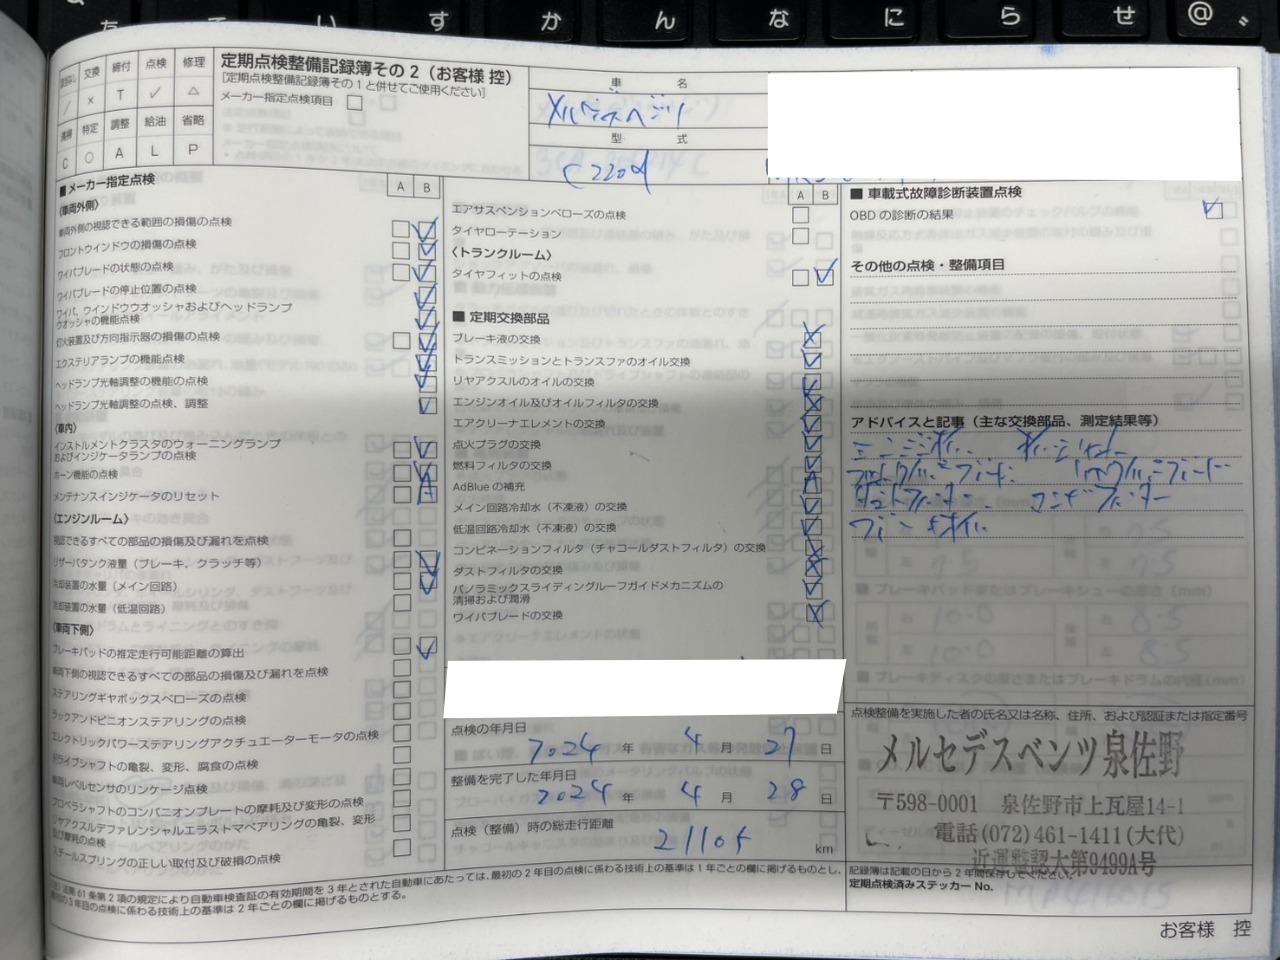 た て い す か ん な に ら せ @ ゛
点検 交換 締付 点検 修理
/ × T ✓ △
清掃 特定 調整 給油 省略
C ○ A L P
定期点検整備記録簿その2（お客様 控）
［定期点検整備記録簿その1と併せてご使用ください］
メーカー指定点検項目
車 名
メルセデスベンツ
型 式
C220d
■ メーカー指定点検
A B
〈車両外側〉
車両外側の視認できる範囲の損傷の点検
フロントウインドウの損傷の点検
ワイパブレードの状態の点検
ワイパブレードの停止位置の点検
ワイパ、ウインドウウオッシャおよびヘッドランプ
ウオッシャの機能点検
灯火装置及び方向指示器の損傷の点検
エクステリアランプの機能点検
ヘッドランプ光軸調整の機能の点検
ヘッドランプ光軸調整の点検、調整
〈車内〉
インストルメントクラスタのウォーニングランプ
およびインジケータランプの点検
ホーン機能の点検
メンテナンスインジケータのリセット
〈エンジンルーム〉
視認できるすべての部品の損傷及び漏れを点検
リザーバタンク液量（ブレーキ、クラッチ等）
冷却装置の水量（メイン回路）
冷却装置の水量（低温回路）
〈車両下側〉
ブレーキパッドの推定走行可能距離の算出
車両下側の視認できるすべての部品の損傷及び漏れを点検
ステアリングギヤボックスベローズの点検
ラックアンドピニオンステアリングの点検
エレクトリックパワーステアリングアクチュエーターモータの点検
ドライブシャフトの亀裂、変形、腐食の点検
車両レベルセンサのリンケージ点検
プロペラシャフトのコンパニオンプレートの摩耗及び変形の点検
リヤアクスルデファレンシャルエラストマベアリングの亀裂、変形
及び摩耗の点検
スチールスプリングの正しい取付及び破損の点検
A B
エアサスペンションベローズの点検
タイヤローテーション
〈トランクルーム〉
タイヤフィットの点検
■ 定期交換部品
ブレーキ液の交換
トランスミッションとトランスファのオイル交換
リヤアクスルのオイルの交換
エンジンオイル及びオイルフィルタの交換
エアクリーナエレメントの交換
点火プラグの交換
燃料フィルタの交換
AdBlueの補充
メイン回路冷却水（不凍液）の交換
低温回路冷却水（不凍液）の交換
コンビネーションフィルタ（チャコールダストフィルタ）の交換
ダストフィルタの交換
パノラミックスライディングルーフガイドメカニズムの
清掃および潤滑
ワイパブレードの交換
点検の年月日
2024 年 4 月 27 日
整備を完了した年月日
2024 年 4 月 28 日
点検（整備）時の総走行距離
21105 km
■ 車載式故障診断装置点検
OBDの診断の結果
その他の点検・整備項目
アドバイスと記事（主な交換部品、測定結果等）
エンジンオイル
ダストフィルター
ブレーキオイル
点検整備を実施した者の氏名又は名称、住所、および認証または指定番号
メルセデスベンツ泉佐野
〒598-0001 泉佐野市上瓦屋14-1
電話(072)461-1411(大代)
近運整認大第9499A号
記録簿は記載の日から2年間保存してください。
定期点検済みステッカー No.
（注）法第61条第2項の規定により自動車検査証の有効期間を3年とされた自動車にあたっては、最初の2年目の点検に係わる技術上の基準は1年ごとの欄に掲げるものとし、
最初の3年目の点検に係わる技術上の基準は2年ごとの欄に掲げるものとする。
お客様 控